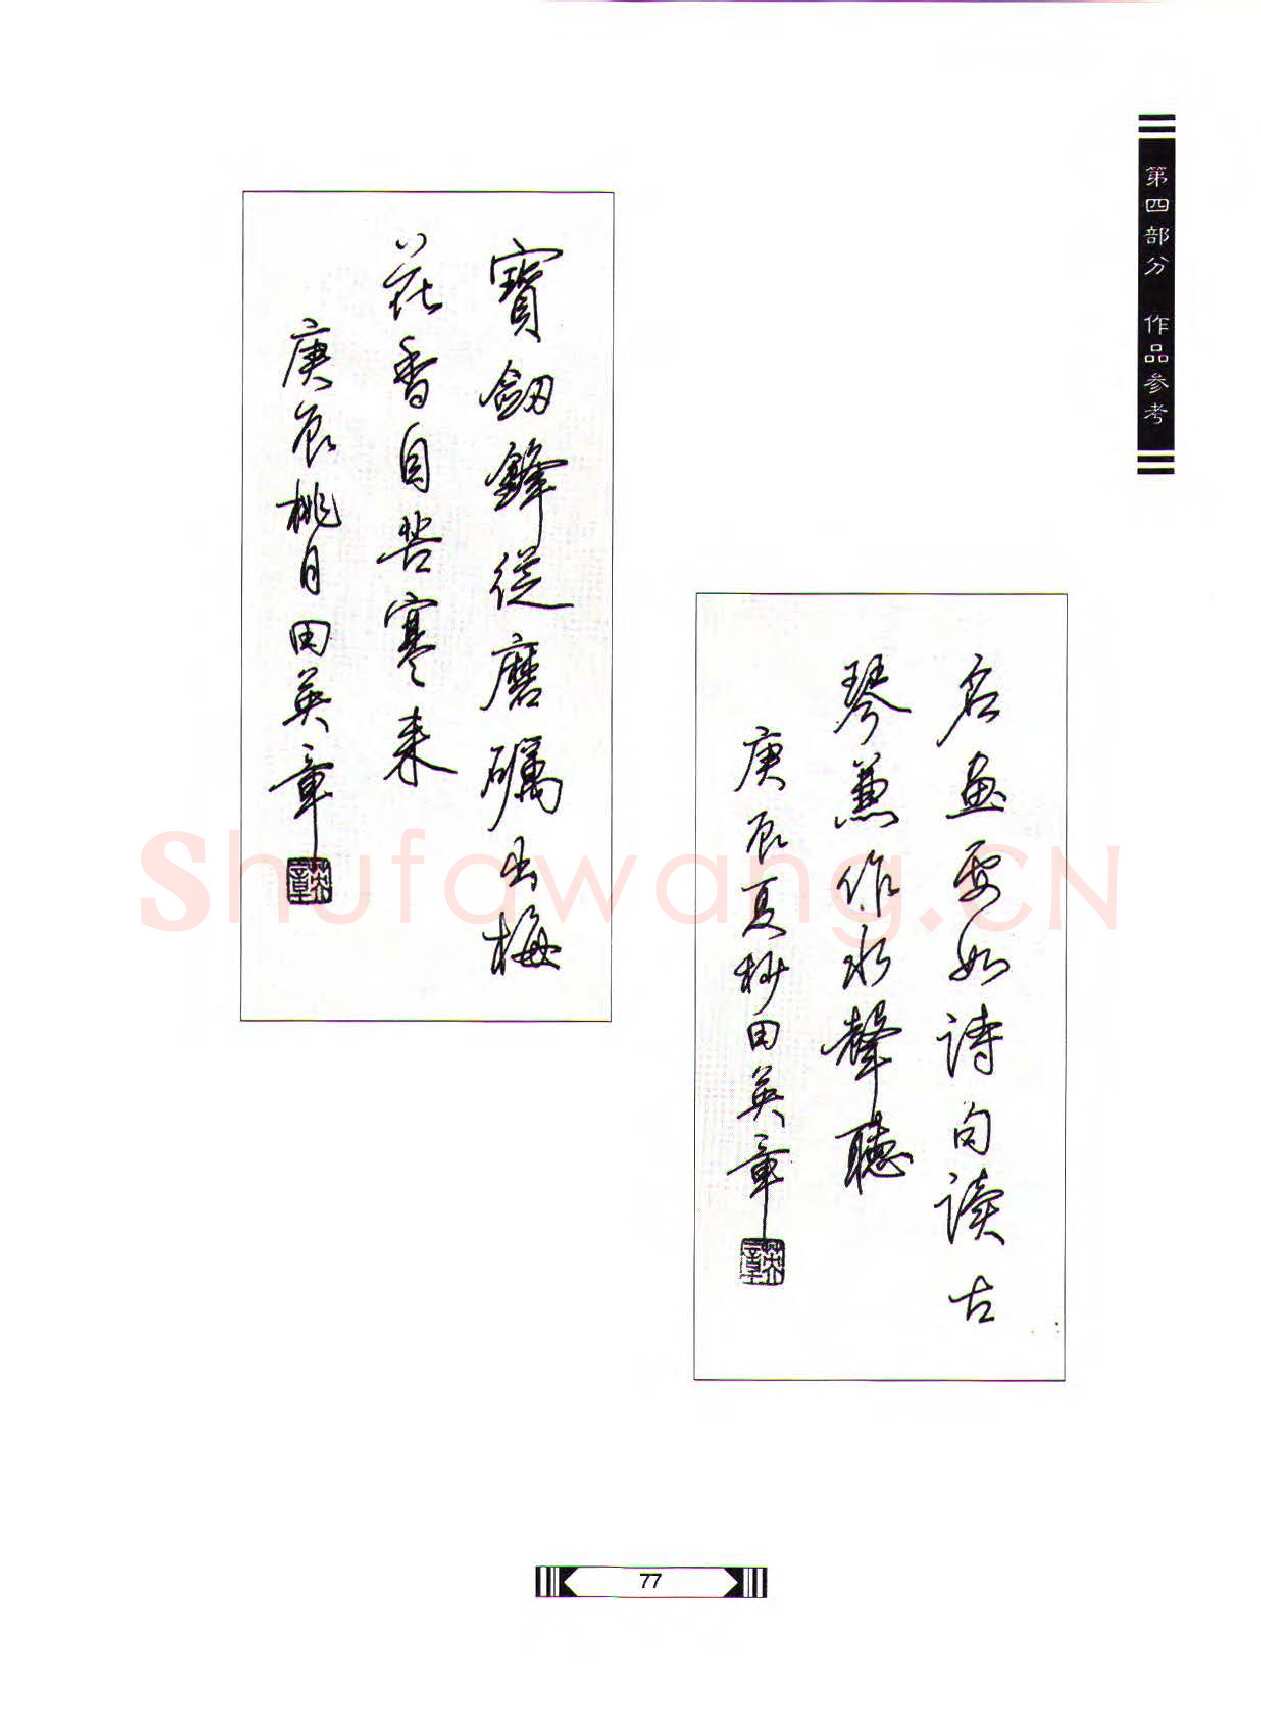 第四部分 作品参考
名畫要如诗句读古
琴兼作水聲聽
庚辰夏杪田英章
英章
寶劔鋒從磨礪出梅
花香自苦寒来
庚辰桃月田英章
英章
Shufawang.CN
77